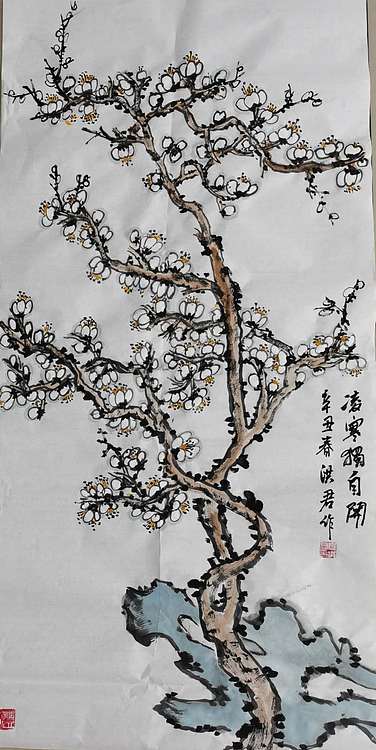 凌寒獨自開
辛丑春洪君作